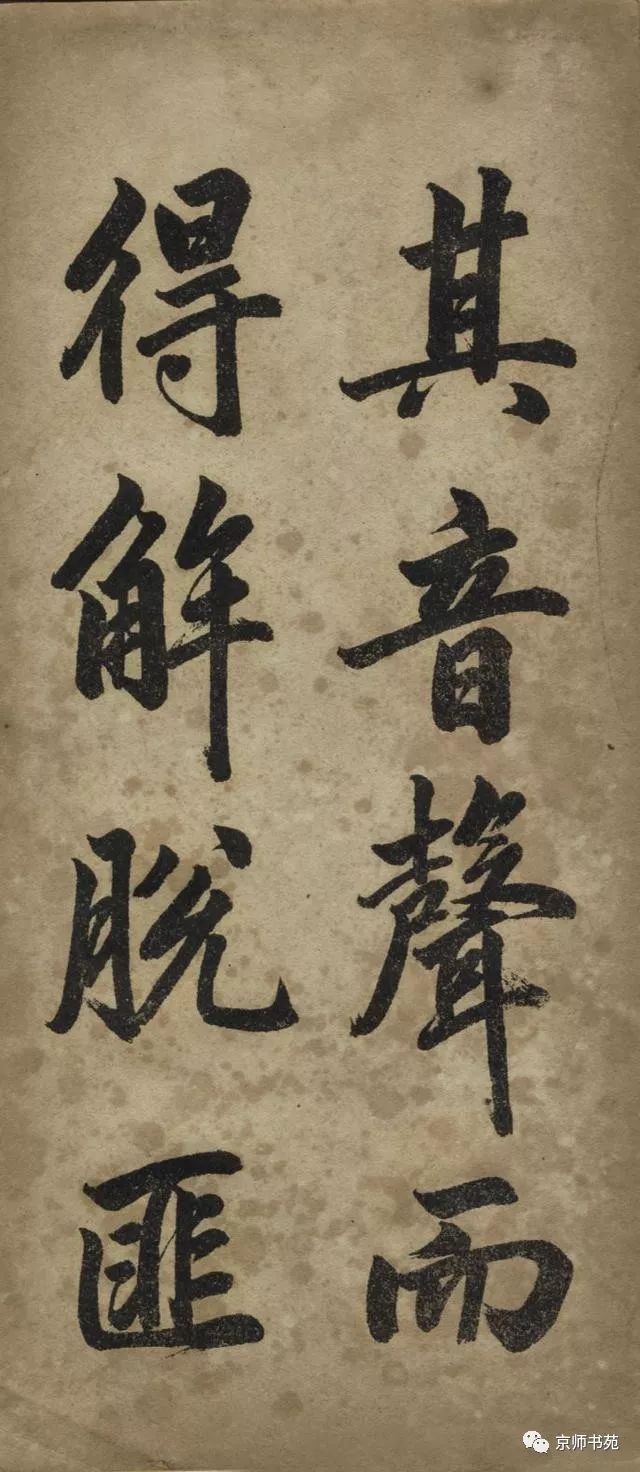 其音聲而
得解脫匪
京师书苑